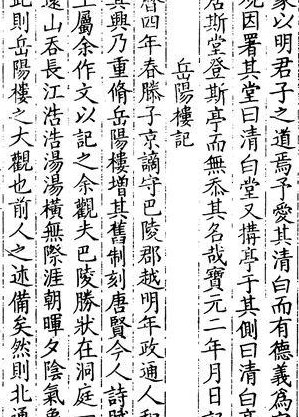 象以明君子之道焉予愛其清白而有德義為官
規因署其堂曰清白堂又構亭于其側曰清白亭
居斯堂登斯亭而無忝其名哉寶元二年月日記
岳陽樓記
曆四年春滕子京謫守巴陵郡越明年政通人和
具興乃重脩岳陽樓增其舊制刻唐賢今人詩賦
上屬余作文以記之余觀夫巴陵勝狀在洞庭一
遠山吞長江浩浩湯湯橫無際涯朝暉夕陰氣象
此則岳陽樓之大觀也前人之述備矣然則北通